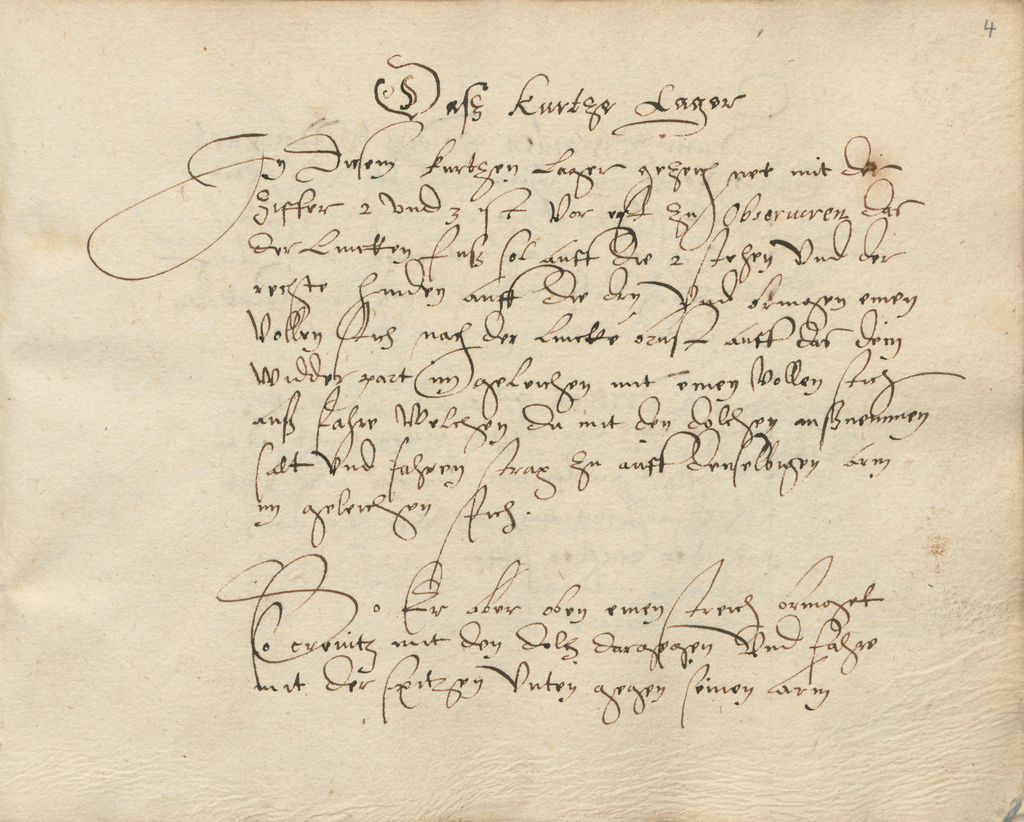 4
Dasz kurtze Lager
In diesem kurtzen Lager gezeichnet mit der
Ziffer 2 und 3 ist vor erst zu Observiren das
der lincken fusz sol auff die 2 stehen und der
rechte hinden auff die dry und ormogen einen
vollen stich nach der lincke brust auff das dein
widderpart im geleichen mit einen vollen stich
ausz fahre welchen du mit den dolchen ausznemmen
salt und fahren strax zu auff denselbigen arm
im geleichen stich.
So Er aber oben einen streich ormoget
So creuitz mit den dolch daragegen und fahre
mit der spitzen unten gegen seinen arm